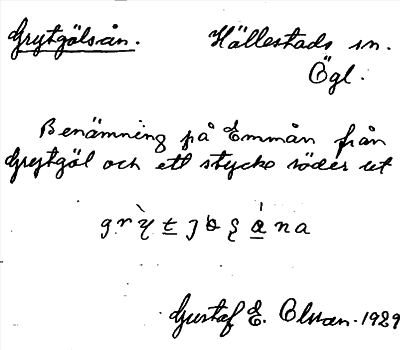 Grytgölsån. Hällestads sn.
Ögl.
Benämning på Emmån från
Grytgöl och ett stycke söder ut
Gustaf E. Olsson. 1929